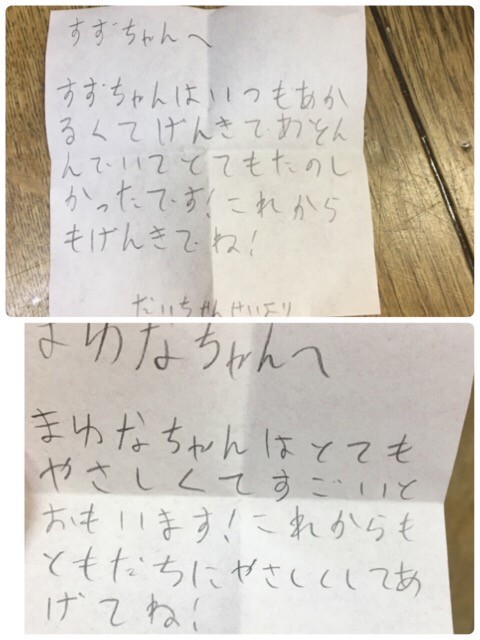 すずちゃんへ
すずちゃんはいつもあか
るくてげんきであそん
んでいてとてもたのし
かったです!これから
もげんきでね!
だいちゃんせいより
まゆなちゃんへ
まゆなちゃんはとても
やさしくてすごいと
おもいます!これからも
ともだちにやさしくしてあ
げてね!